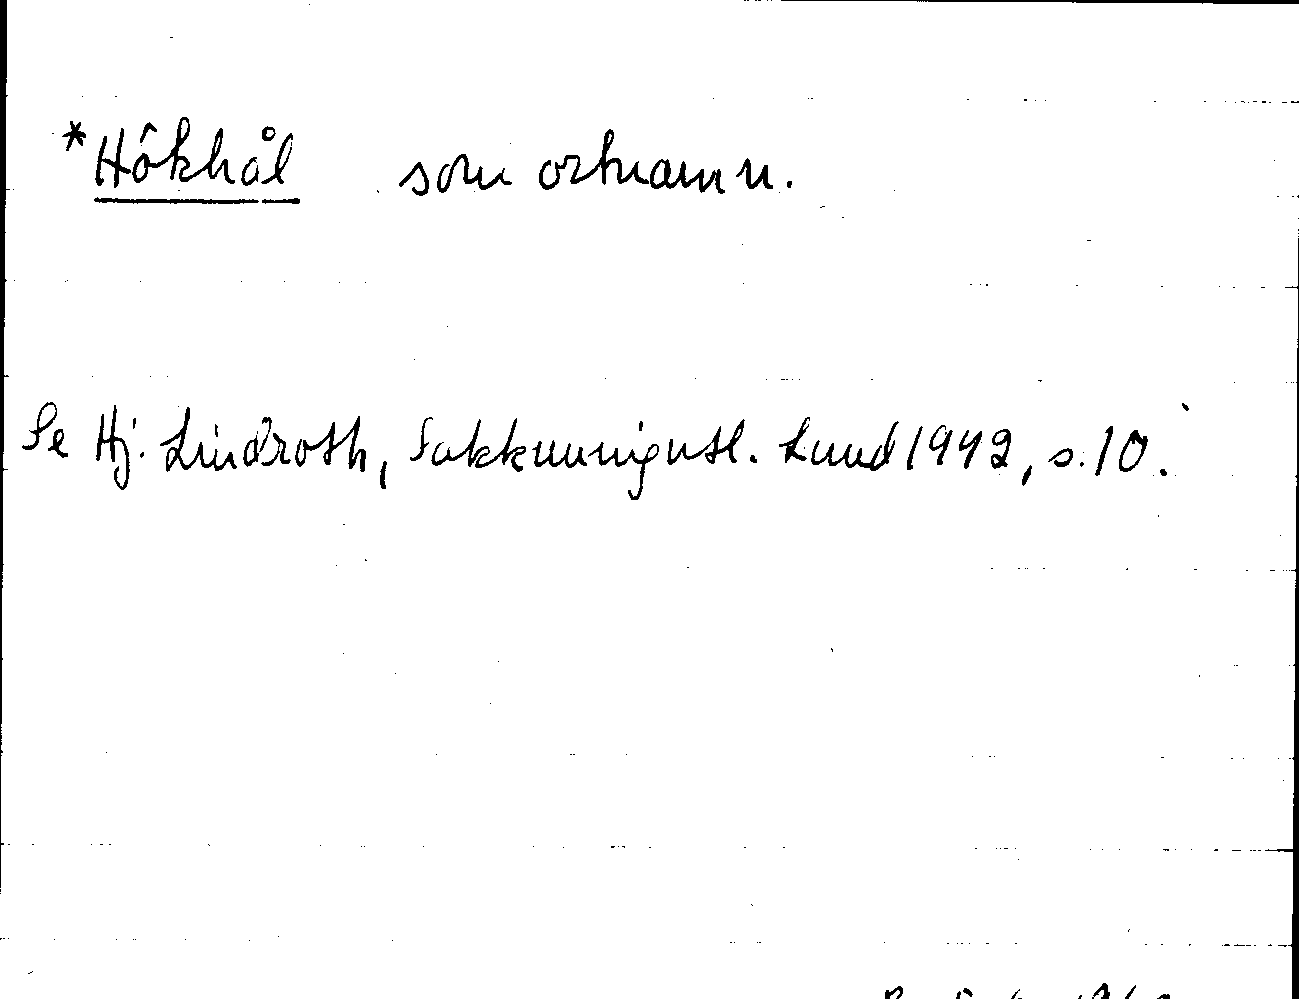 *Hökhål som ortnamn.
Se Hj. Lindroth, Sakkunnigutl. Lund 1942, s. 10.